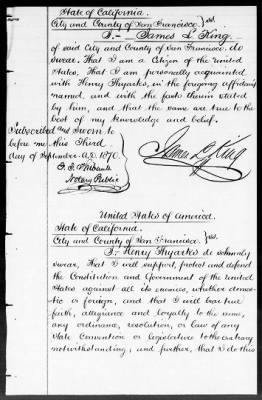 State of California.
City and County of San Francisco } ss.
I.- James L. King.
of said City and County of San Francisco. do
swear. That I am a Citizen of the United
States, That I am personally acquainted
with Henry Thyarks, in the foregoing affidavit
named, and with the facts therein stated
by him, and that the same are true to the
best of my knowledge and belief.
Subscribed and sworn to
before me this Third
day of September. A.D. 1870.
James L. King
Notary Public
United States of America.
State of California.
City and County of San Francisco. } ss.
I.- Henry Thyarks do solemnly
swear, that I will support, protect and defend
the Constitution and Government of the United
States against all its enemies, whether domes-
tic or foreign, and that I will bear true
faith, allegiance and loyalty to the same,
any ordinance, resolution, or law of any
State Convention or Legislature to the contrary
notwithstanding; and further, that I do this